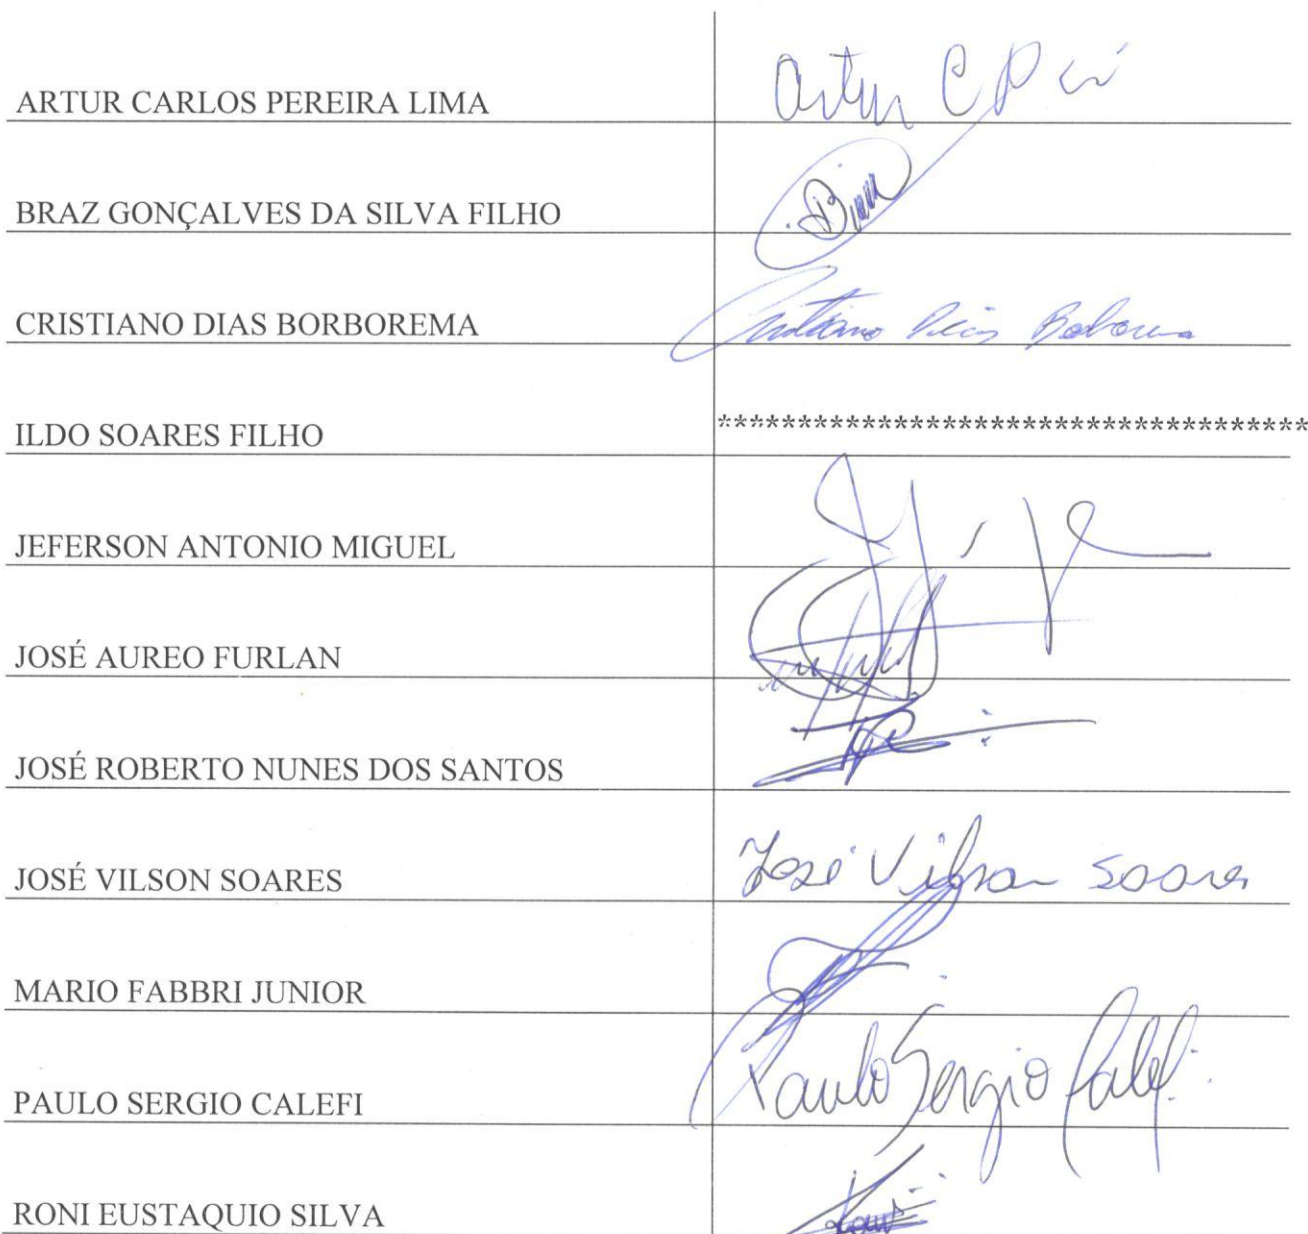 ARTUR CARLOS PEREIRA LIMA Artur C P
BRAZ GONÇALVES DA SILVA FILHO
CRISTIANO DIAS BORBOREMA Cristiano Dias Borborema
ILDO SOARES FILHO *************************************
JEFERSON ANTONIO MIGUEL
JOSÉ AUREO FURLAN
JOSÉ ROBERTO NUNES DOS SANTOS
JOSÉ VILSON SOARES José Vilson Soares
MARIO FABBRI JUNIOR
PAULO SERGIO CALEFI Paulo Sergio Calefi
RONI EUSTAQUIO SILVA Roni